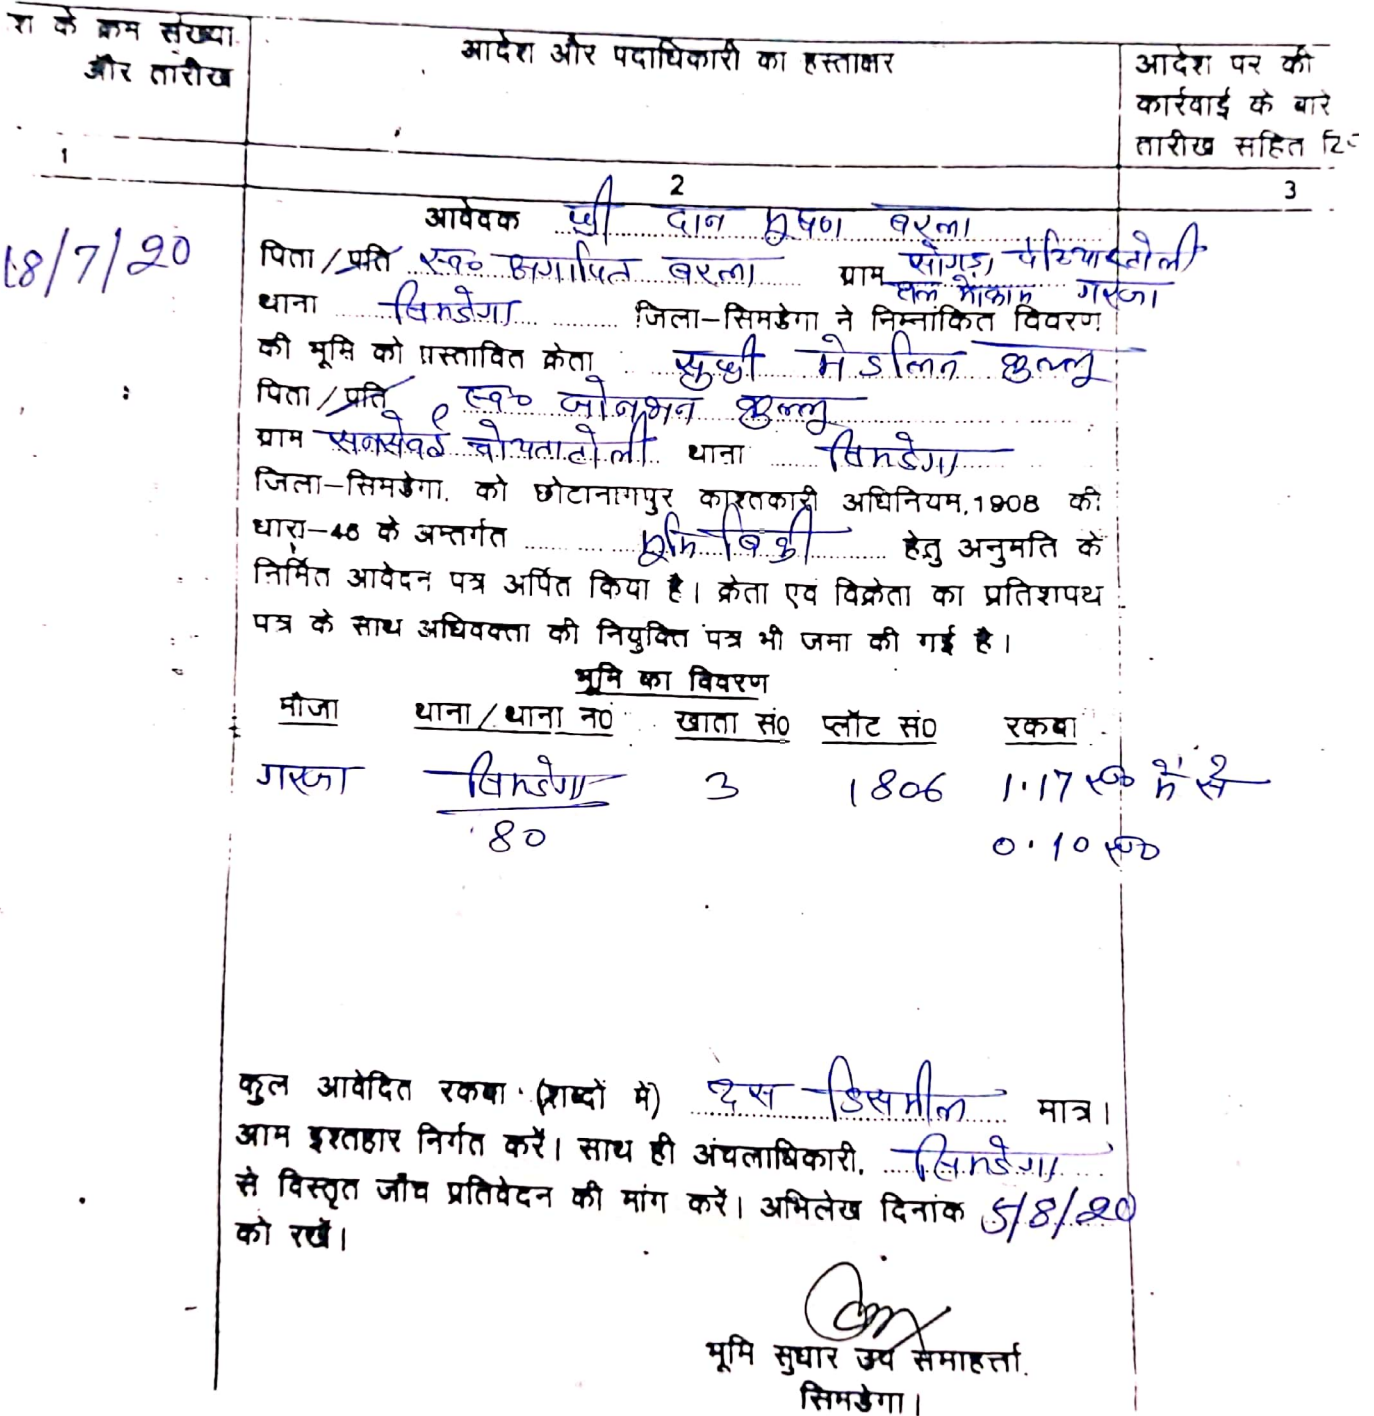 श के क्रम संख्या और तारीख
आदेश और पदाधिकारी का हस्ताक्षर
आदेश पर की
कार्रवाई के बारे
तारीख सहित
1
2
3
18/7/20
आवेदक श्री दान भूषण बरला
पिता / प्रति स्व० अगापित बरला ग्राम सोगड़ा
हाल मोकाम गरजा
थाना सिमडेगा जिला-सिमडेगा ने निम्नांकित विवरण
की भूमि को प्रस्तावित क्रेता सुश्री मेडलिन कुल्लू
पिता / प्रति स्व० जोनभन कुल्लू
ग्राम थाना सिमडेगा
जिला-सिमडेगा. को छोटानागपुर काश्तकारी अधिनियम, 1908 की
धारा-46 के अन्तर्गत भूमि बिक्री हेतु अनुमति के
निमित आवेदन पत्र अर्पित किया है। क्रेता एवं विक्रेता का प्रतिशपथ
पत्र के साथ अधिवक्ता की नियुक्ति पत्र भी जमा की गई है।
भूमि का विवरण
मौजा थाना / थाना न० खाता सं० प्लॉट सं० रकबा
गरजा सिमडेगा 3 1806 1.17 ए० में से
80 0.10 ए०
कुल आवेदित रकबा (शब्दों में) दस डिसमील मात्र।
आम इश्तहार निर्गत करें। साथ ही अंचलाधिकारी, सिमडेगा
से विस्तृत जाँच प्रतिवेदन की मांग करें। अभिलेख दिनांक 5/8/20
को रखें।
भूमि सुधार उप समाहर्त्ता.
सिमडेगा।